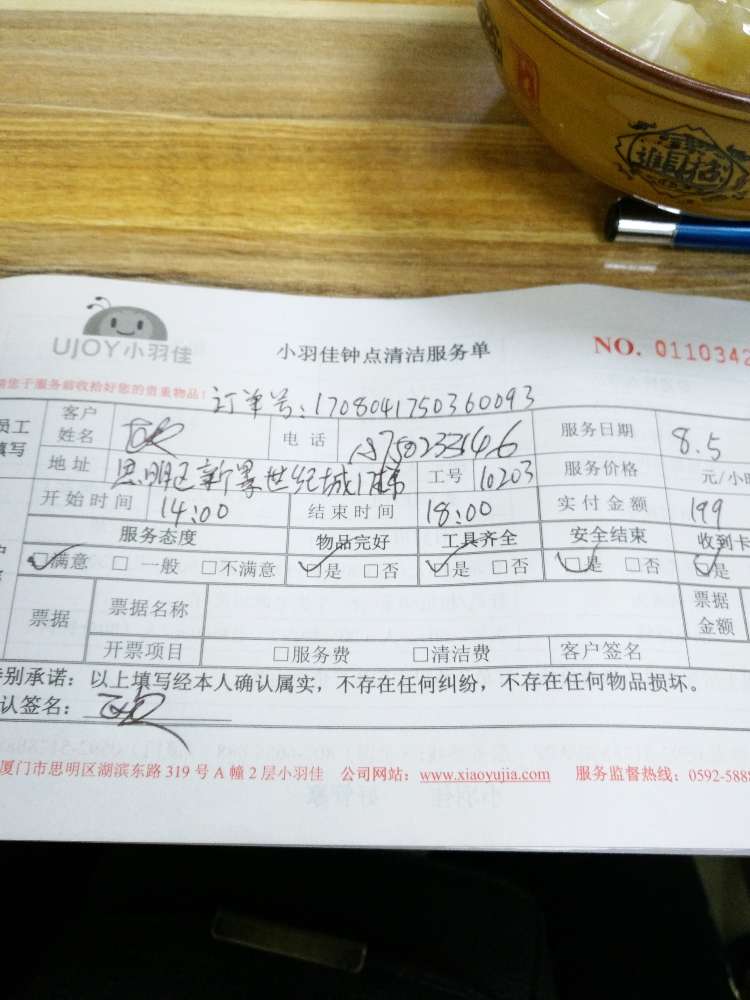 UJOY小羽佳
小羽佳钟点清洁服务单
NO. 0110342
请您于服务前收拾好您的贵重物品!
订单号:1708041750360093
员工
填写
客户
姓名
电 话
服务日期 8.5
地址 思明区新景世纪城 工号 10203 服务价格 元/小时
开始时间 14:00 结束时间 18:00 实付金额 199
服务态度 物品完好 工具齐全 安全结束 收到卡
☑满意 □ 一般 □不满意 ☑是 □否 ☑是 □否 ☑是 □否 ☑是
票据 票据名称 票据
金额
开票项目 □服务费 □清洁费 客户签名
特别承诺:以上填写经本人确认属实,不存在任何纠纷,不存在任何物品损坏。
认签名:
厦门市思明区湖滨东路 319 号 A 幢 2 层小羽佳 公司网站:www.xiaoyujia.com 服务监督热线:0592-5888
進財